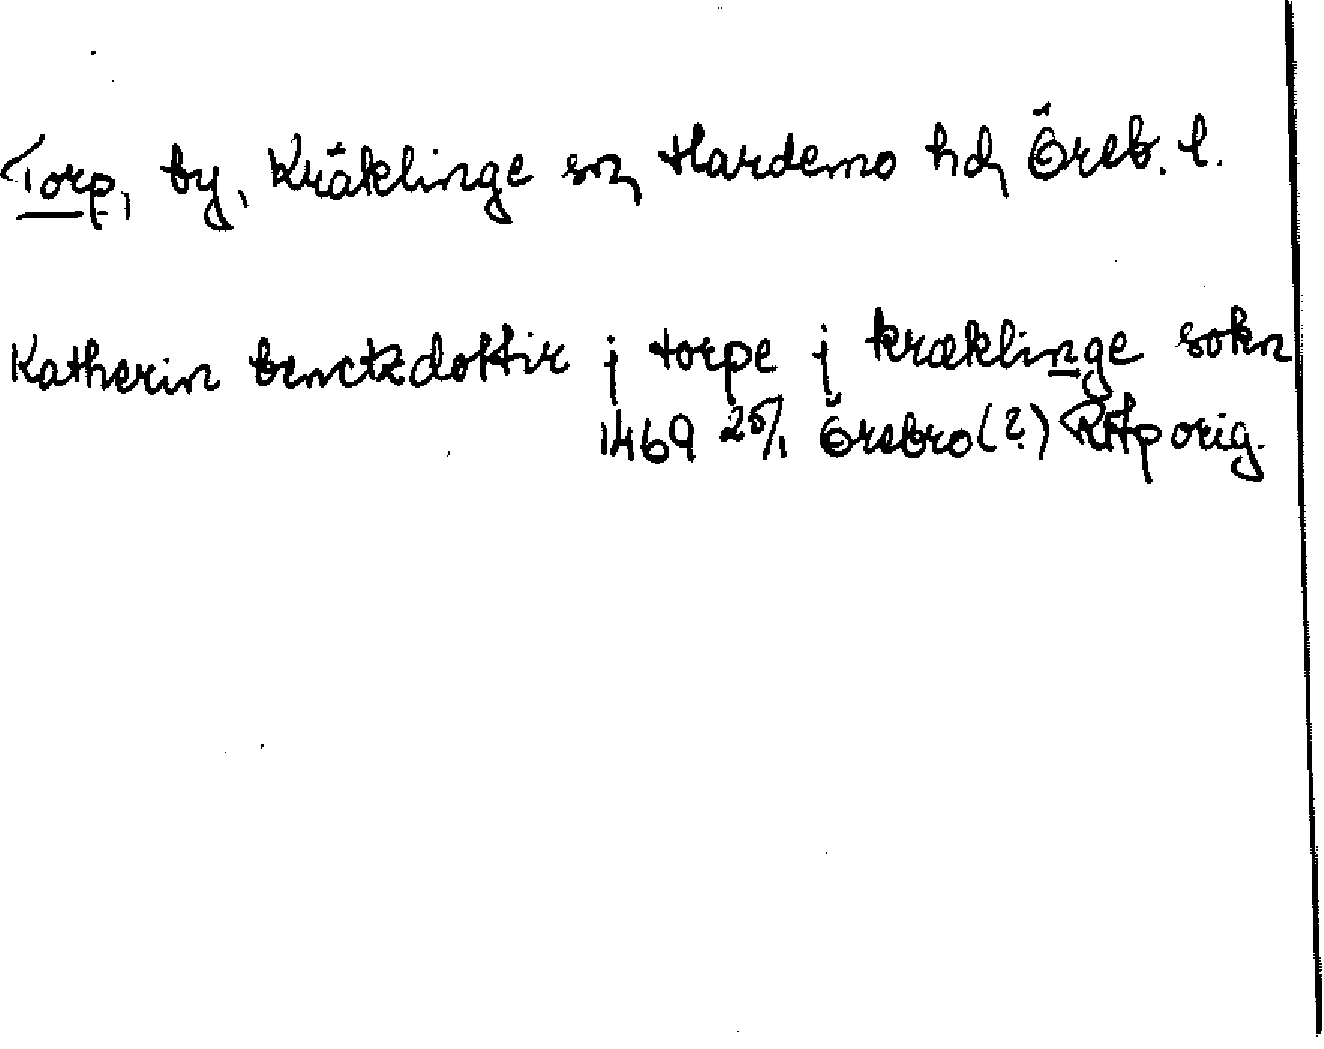 Torp, by, Kräklinge sn, Hardemo hd, Öreb. l.
Katherin benctzdottir j torpe j kræklinge sokn
1469 25/1 Örebro(?) RAp orig.